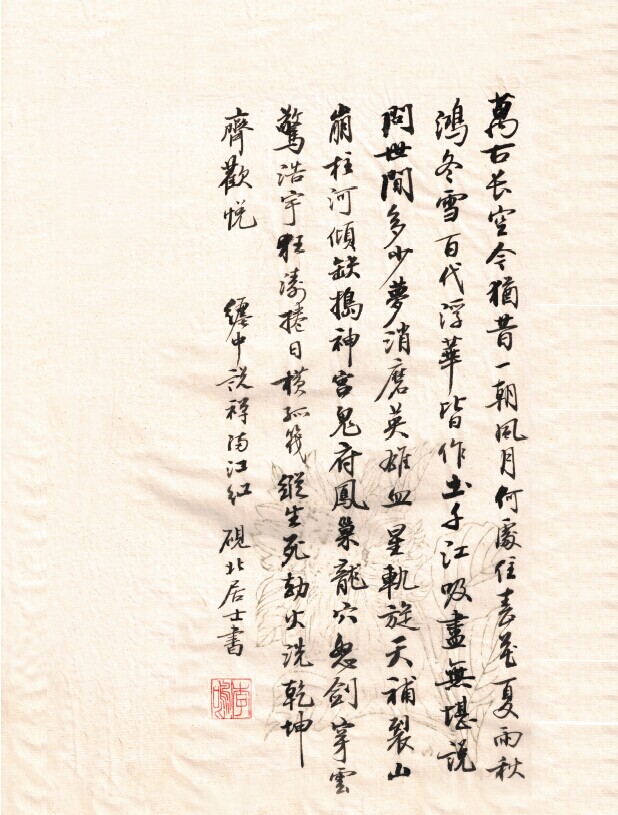 萬古长空今猶昔一朝风月何處住春花夏雨秋
鴻冬雪百代浮華皆作土千江吸盡無堪説
問世間多少夢消磨英雄血星軌旋天補裂山
崩柱河傾缺搗神宫鬼府鳳巢龍穴忽劍穿雲
驚浩宇狂濤捲日横孤筏縱生死劫火洗乾坤
齊歡悦
纏中説禅满江红 硯北居士書